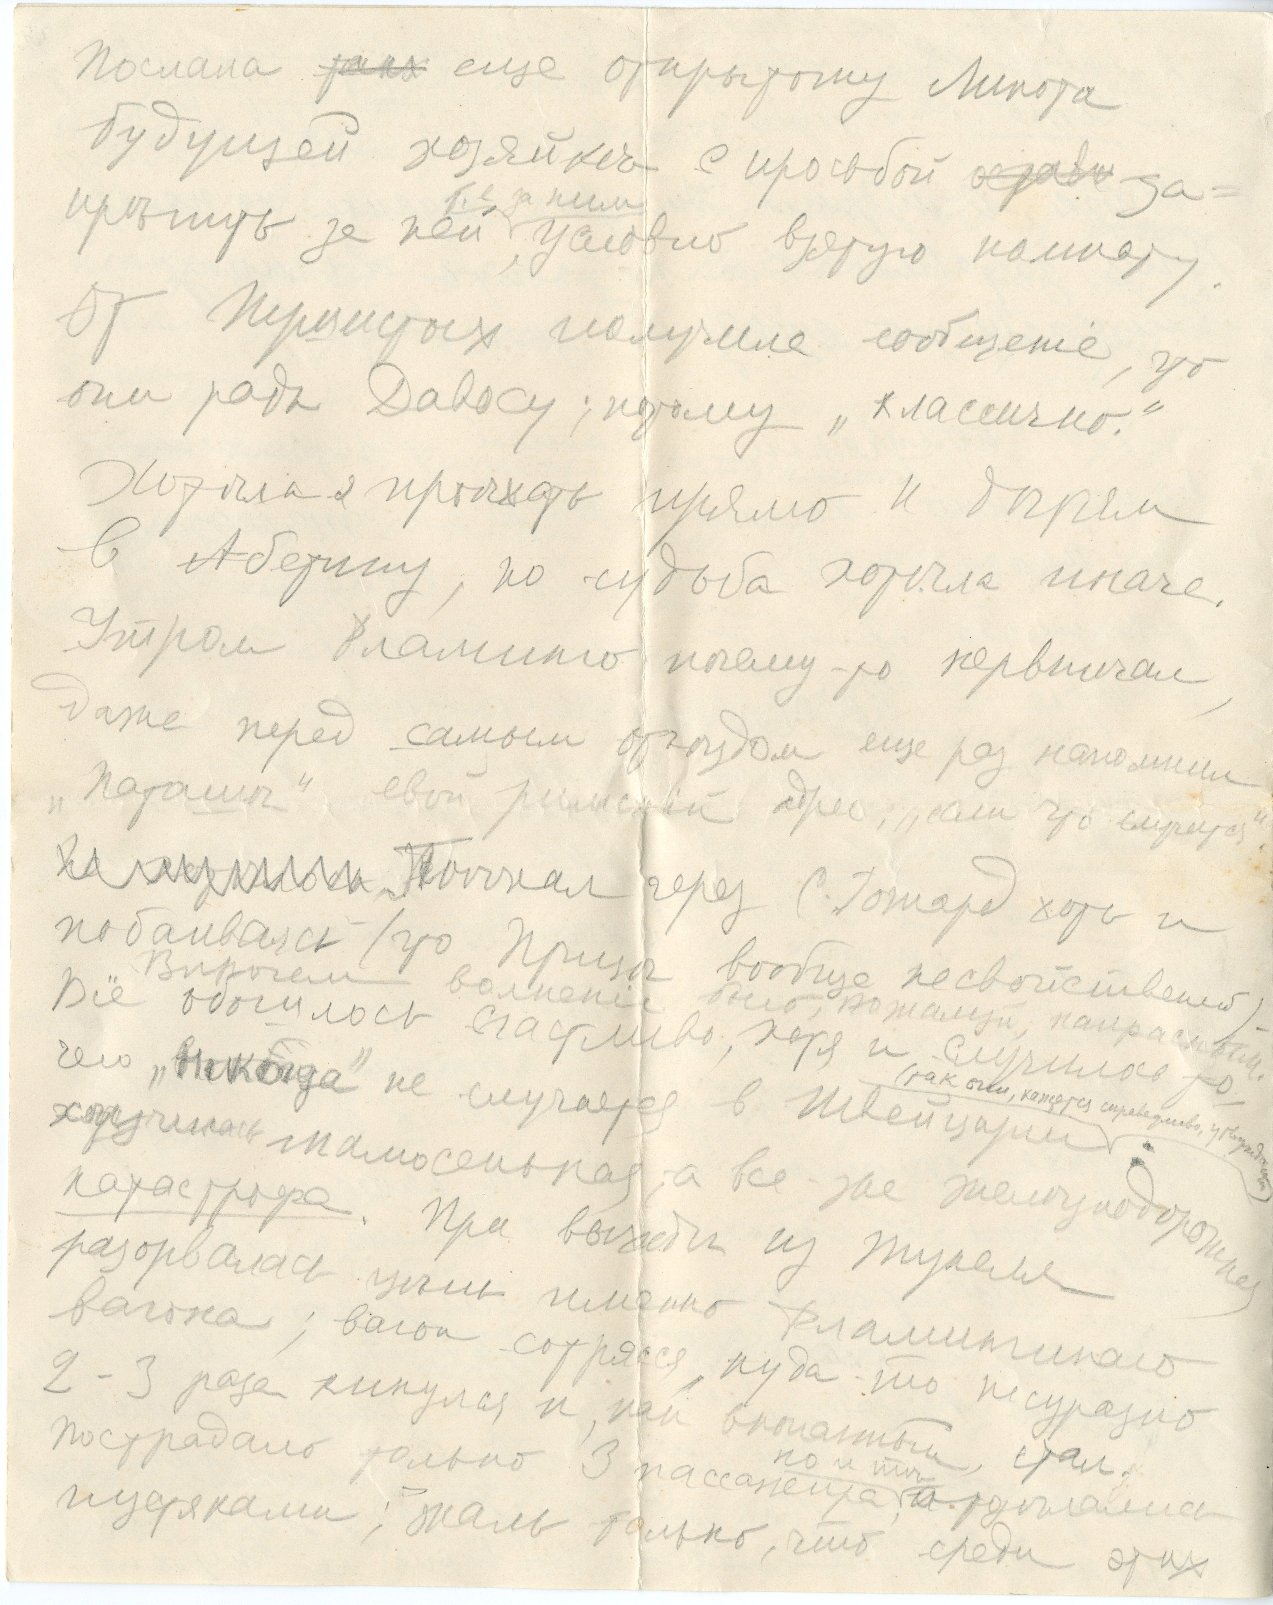 Послала еще открытому Минота
будущей хозяйкѣ с просьбой за=
крѣпить за ней, условно взятую комнату.
т.е. за ним
От Пернистых получила сообщенiе, что
они рады Давосу; потому „классично."
Хотѣла я проѣхать прямо к дочкам
в Абетину, но судьба хотѣла иначе.
Утром Фламинго почему-то нервничал,
даже перед самым отъѣздом еще раз напомнил
„Наташѣ" свой римскiй адрес, „если что случится"
Поѣхал через С. Готард хоть и
побаивался (что Принцу вообще несвойственно).
Впрочем волненiе было, пожалуй, напрасным.
Всё обошлось счастливо, хотя и случилось то,
чего „никогда" не случается в Швейцарии
(так они, кажется справедливо, утверждают)
малюсенькая, а все-же желѣзнодорожная
катастрофа. При выѣздѣ из тунеля
разорвалась цѣпь именно Фламингинаго
вагона; вагон сотрясся, куда-то несуразно
2-3 раза кинулся и, как вкопанный, стал.
Пострадало только 3 пассажира, отдѣлались
но и тѣ
пустяками; жаль только, что среди этих